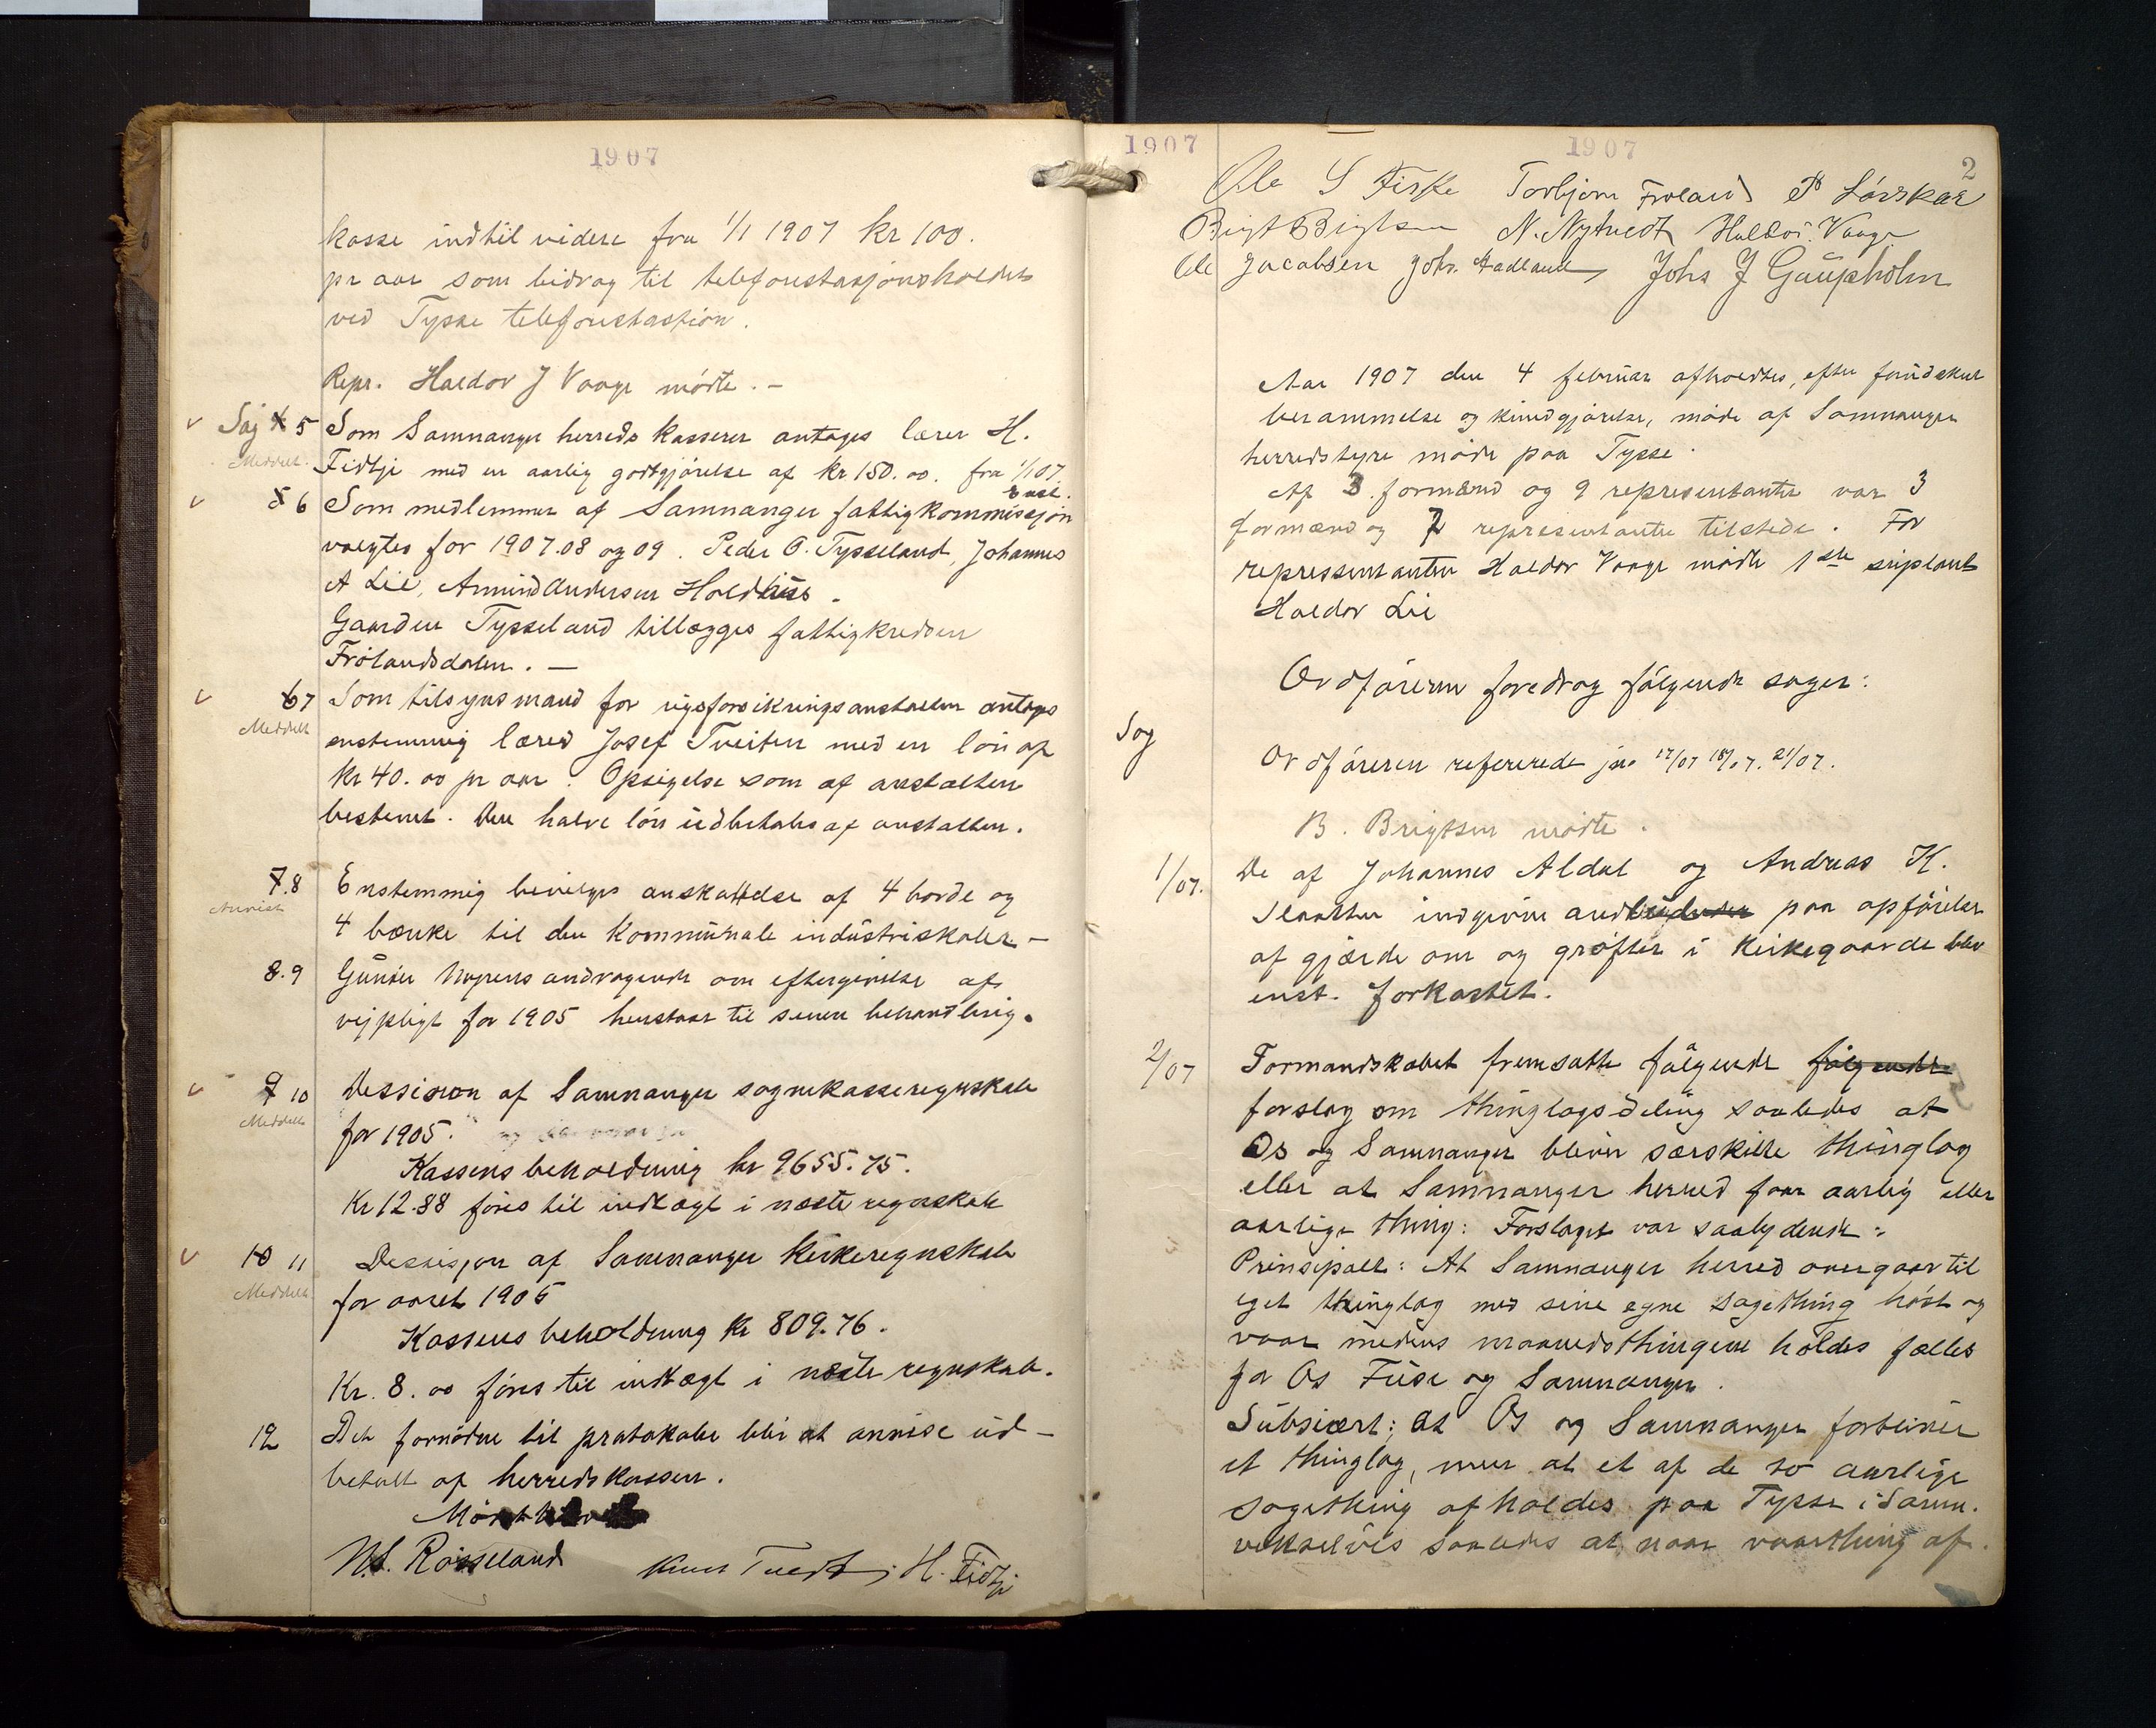 1907
kasse indtil videre fra 1/1 1907 kr 100.
pr aar som bidrag til telefonstasjonsholdet
ved Tysse telefonstastion.
Repr. Haldor J Vaage mødte. -
Sag 4 5 Som Samnanger herreds kasserer antages lærer H.
Meddelt. Fidtje med en aarlig godtgjørelse af kr 150.00. fra 1/1 07.
Enst.
5 6 Som medlemmer af Samnanger fattigkommissjon
valgtes for 1907.08 og 09. Peder O. Tysseland, Johannes
A Lie, Amund Andersen Holdhus.
Gaarden Tysseland tillægges fattigkredsen
Frølandsdalen. -
6 7 Som tilsynsmand for rigsforsikringsanstalten antages
Meddelt enstemmig lærer Josef Tveiten med en løn af
kr 40.00 pr aar. Opsigelse som af anstalten
bestemt. Den halve løn udbetales af anstalten.
7.8 Enstemmig bevilges anskaffelse af 4 borde og
Anvist 4 bænke til den kommunale industriskole. -
8.9 Gunder andragende om eftergivelse af
vejpligt for 1905 henstaar til senere behandling.
9 10 Dessision af Samnanger sognekasseregnskab
Meddelt for 1905.
Kassens beholdning kr 9655.75.
Kr 12.88 føres til indtægt i næste regnskab
10 11 Dessisjon af Samnanger kirkeregnskab
Meddelt for aaret 1905
Kassens beholdning kr 809.76.
Kr. 8.00 føres til indtægt i næste regnskab.
12 Det fornødne til protokoler blir at anvise ud-
betalt af herredskassen.
Mødet
N.S. Røsseland Knut Tvedt H. Fidtje
1907
1907
2
Ole S Fiske Torbjørn Frøland P Lørskar
Brigt Brigtsen N. Nytvedt Haldor. Vaage
Ole Jacobsen Johs. Aadland Johs J Gaupholm
Aar 1907 den 4 februar afholdtes, efter forudskut
berammelse og kundgjørelse, møde af Samnanger
herredstyre møde paa Tysse.
Af 3 formænd og 9 representanter var 3
formænd og 7 representanter tilstede. For
repressentanten Haldor Vaage mødte 1ste supleant
Haldor Lie
Ordføreren foredrog følgende sager:
Sag
Ordføreren refererede jno 17/07 18/07. 21/07.
B. Brigtsen mødte.
1/07. De af Johannes Aldal og Andreas K.
indgivne andbud paa opførelse
af gjærde om og grøfter i kirkegaarde blev
enst. forkastet.
2/07 Formandskabet fremsatte følgende følgende
forslag om thinglagsdeling saaledes at
Os og Samnanger bliver særskilte thinglag
eller at Samnanger herred faar aarlig eller
aarlige thing: Forslaget var saalydende:
Prinsipalt: At Samnanger herred overgaar til
eget thinglag med sine egne sagething høst og
vaar medens maanedsthingene holdes fælles
for Os Fuse og Samnanger.
Subsiært; at Os og Samnanger forbliver
et thinglag, men at et af de to aarlige
sagething afholdes paa Tysse i Samn.
vekselvis saaledes at naar vaarthing af.